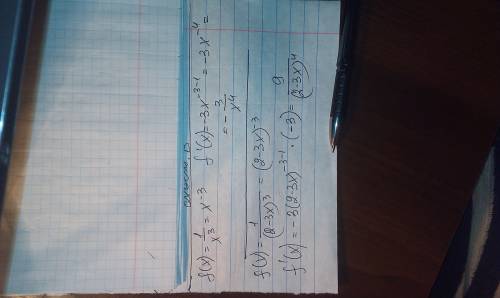 f(x) = 1/x³ = x⁻³  f'(x) = -3x⁻³⁻¹ = -3x⁻⁴ =
= -3/x⁴
f(x) = 1/(2-3x)³ = (2-3x)⁻³
f'(x) = -3(2-3x)⁻³⁻¹ · (-3) = 9/(2-3x)⁴